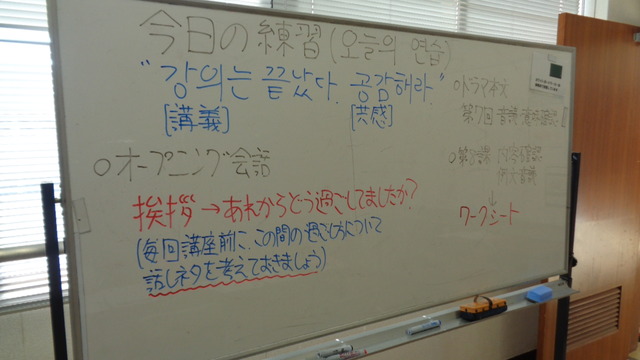 今日の練習(오늘의 연습)
"강의는 끝났다. 공감해라."
[講義] [共感]
○オープニング会話
挨拶→あれからどう過ごしてましたか?
(毎回講座前に、この間の過ごし方について
話しネタを考えておきましょう)
○ドラマ本文
第17回 音読
内容確認
例文音読
↓
ワークシート